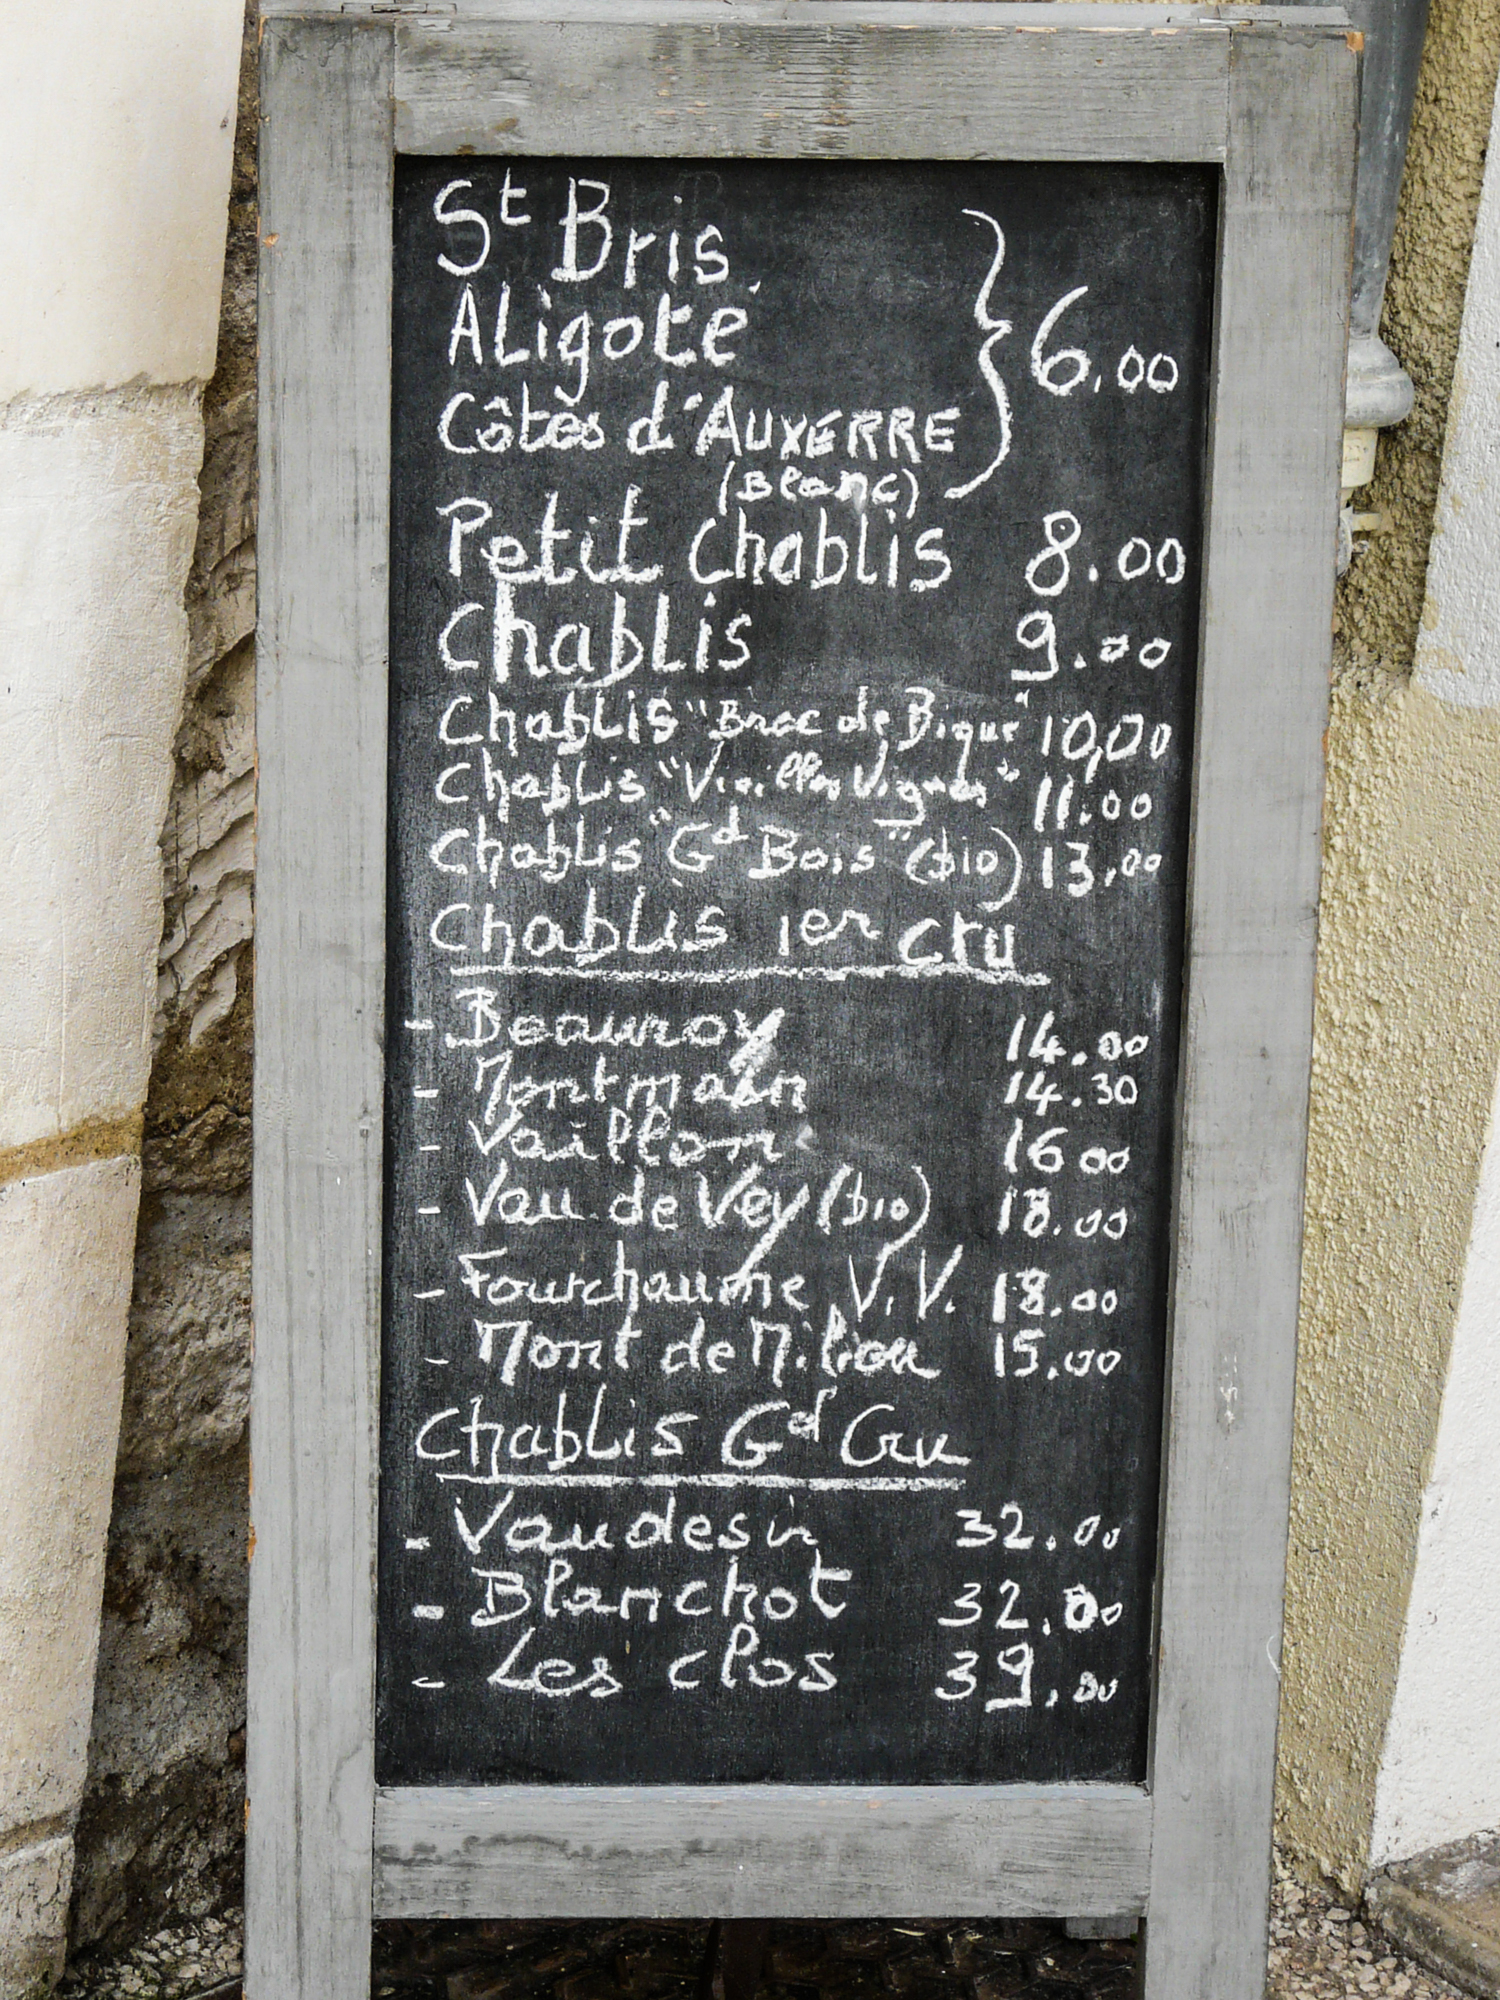 St Bris
ALigoté
Côtes d'AUXERRE } 6.00
(Blanc)
Petit Chablis 8.00
Chablis 9.00
Chablis "Broc de Bique" 10,00
Chablis "Vieilles Vignes" 11.00
Chablis "Gd Bois" (bio) 13.00
Chablis 1er Cru
- Beauroy 14.00
- Montmain 14.30
- Vaillon 16 00
- Vau de Vey (bio) 18.00
- Fourchaume V.V. 18.00
- Mont de Miliou 15.00
Chablis Gd Cru
- Vaudesir 32.00
- Blanchot 32.00
- Les clos 39.00